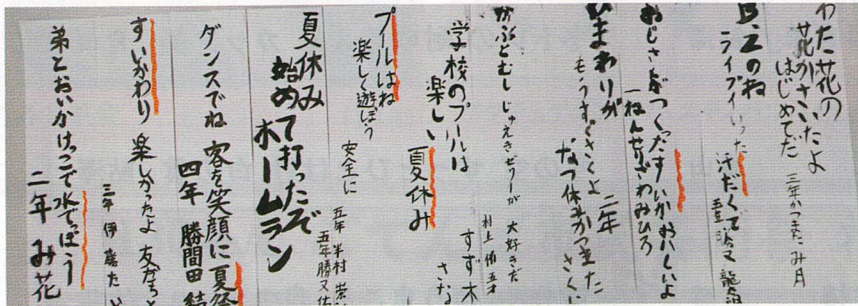 わた花の
花がさいたよ
はじめてだ 三年かつまたみ月
B'zのね
ライブイいった
汗だくで
おじさんがつくったすいかおいしいよ
一ねんせりざわみひろ
ひまわりが
もうすぐさくよ 二年
なつ休みかつまた
さくに
かぶとむし じゅえきゼリーが 大好きだ
村上
学校のプールは
楽しい 夏休み
すず木
さな
プールはね
楽しく遊ぼう
安全に
五年
五年勝又
夏休み
始めて打ったぞ
ホームラン
ダンスでね 客を笑顔に 夏祭
四年 勝間田 結
すいかわり 楽しかったよ 友だちと
三年 伊
弟とおいかけっこで水でっぽう
二年 み花